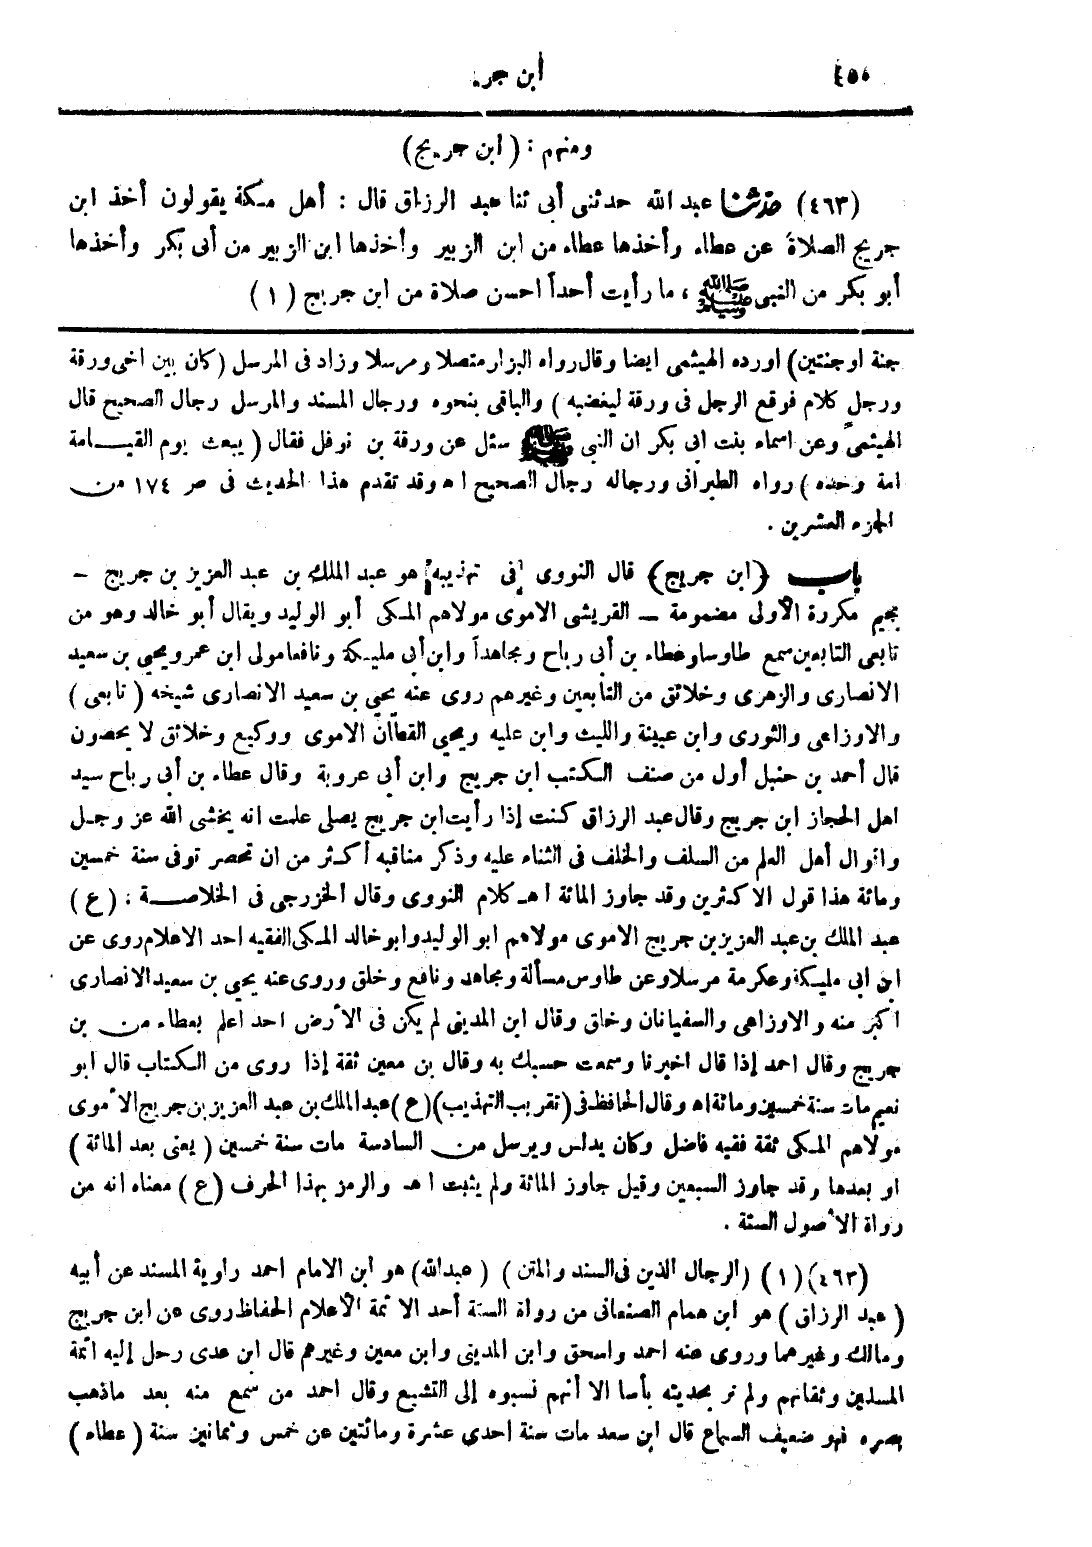 ٤٥٠ ابن جر
ومنهم : ( ابن جريج)
(٤٦٣) حدثنا عبد الله حدثنى أبى ثنا عبد الرزاق قال : أهل مكة يقولون أخذ ابن
جريج الصلاة عن عطاء وأخذها عطاء من ابن الزبير وأخذها ابن الزبير من أبى بكر وأخذها
أبو بكر من النبى ﷺ ، ما رأيت أحداً احسن صلاة من ابن جريج ( ١ )
جنة او جنتين) اورده الهيثمى ايضا وقال رواه البزار متصلا ومرسلا وزاد فى المرسل (كان بين اخى ورقة
ورجل كلام فوقع الرجل فى ورقة ليغضبه ) والباقى بنحوه ورجال المسند والمرسل رجال الصحيح قال
الهيثمى وعن اسماء بنت ابى بكر ان النبى ﷺ سئل عن ورقة بن نوفل فقال ( يبعث يوم القيامة
امة وحده ) رواه الطبرانى ورجاله رجال الصحيح اهـ وقد تقدم هذا الحديث فى ص ١٧٤ من
الجزء العشرين .
باب (ابن جريج) قال النووى فى تهذيبه هو عبد الملك بن عبد العزيز بن جريج –
بجيم مكررة الأولى مضمومة – القريشى الاموى مولاهم المكى أبو الوليد ويقال أبو خالد وهو من
تابعى التابعين سمع طاوسا وعطاء بن أبى رباح ومجاهداً وابن أبى مليكة ونافعا مولى ابن عمر ويحيى بن سعيد
الانصارى والزهرى وخلائق من التابعين وغيرهم روى عنه يحيى بن سعيد الانصارى شيخه ( تابعى )
والاوزاعى والثورى وابن عيينة والليث وابن عليه ويحيى القطان الاموى ووكيع وخلائق لا يحصون
قال أحمد بن حنبل أول من صنف الكتب ابن جريج وابن أبى عروبة وقال عطاء بن أبى رباح سيد
اهل الحجاز ابن جريج وقال عبد الرزاق كنت إذا رأيت ابن جريج يصلى علمت انه يخشى الله عز وجل
واقوال أهل العلم من السلف والخلف فى الثناء عليه وذكر مناقبه أكثر من ان تحصر توفى سنة خمسين
ومائة هذا قول الاكثرين وقد جاوز المائة اهـ كلام النووى وقال الخزرجى فى الخلاصة ، (ع)
عبد الملك بن عبد العزيز بن جريج الاموى مولاهم ابو الوليد وابو خالد المكى الفقيه احد الاعلام روى عن
ابن ابى مليكة وعكرمة مرسلا وعن طاوس مسألة ومجاهد ونافع وخلق وروى عنه يحيى بن سعيد الانصارى
اكبر منه والاوزاعى والسفيانان وخلق وقال ابن المدينى لم يكن فى الأرض احد اعلم بعطاء من بن
جريج وقال احمد إذا قال اخبرنا وسمعت حسبك به وقال بن معين ثقة إذا روى من الكتاب قال ابو
نعيم مات سنة خمسين ومائة اهـ وقال الحافظ فى (تقريب التهذيب)(ع) عبد الملك بن عبد العزيز بن جريج الأموى
مولاهم المكى ثقة فقيه فاضل وكان يدلس ويرسل من السادسة مات سنة خمسين ( يعنى بعد المائة )
او بعدها وقد جاوز السبعين وقيل جاوز المائة ولم يثبت اهـ والرمز بهذا الحرف (ع) معناه انه من
رواة الأصول الستة .
(٤٦٣) ( ١ ) (الرجال الذين فى السند والمتن ) ( عبدالله) هو ابن الامام احمد راوية المسند عن أبيه
( عبد الرزاق ) هو ابن همام الصنعانى من رواة الستة أحد الائمة الأعلام الحفاظ روى عن ابن جريج
ومالك وغيرهما وروى عنه احمد واسحق وابن المدينى وابن معين وغيرهم قال ابن عدى رحل إليه ائمة
المسلمين وثقاتهم ولم نر بحديثه بأسا الا أنهم نسبوه إلى التشيع وقال احمد من سمع منه بعد ماذهب
بصره فهو ضعيف السماع قال ابن سعد مات سنة احدى عشرة ومائتين عن خمس وثمانين سنة ( عطاء )